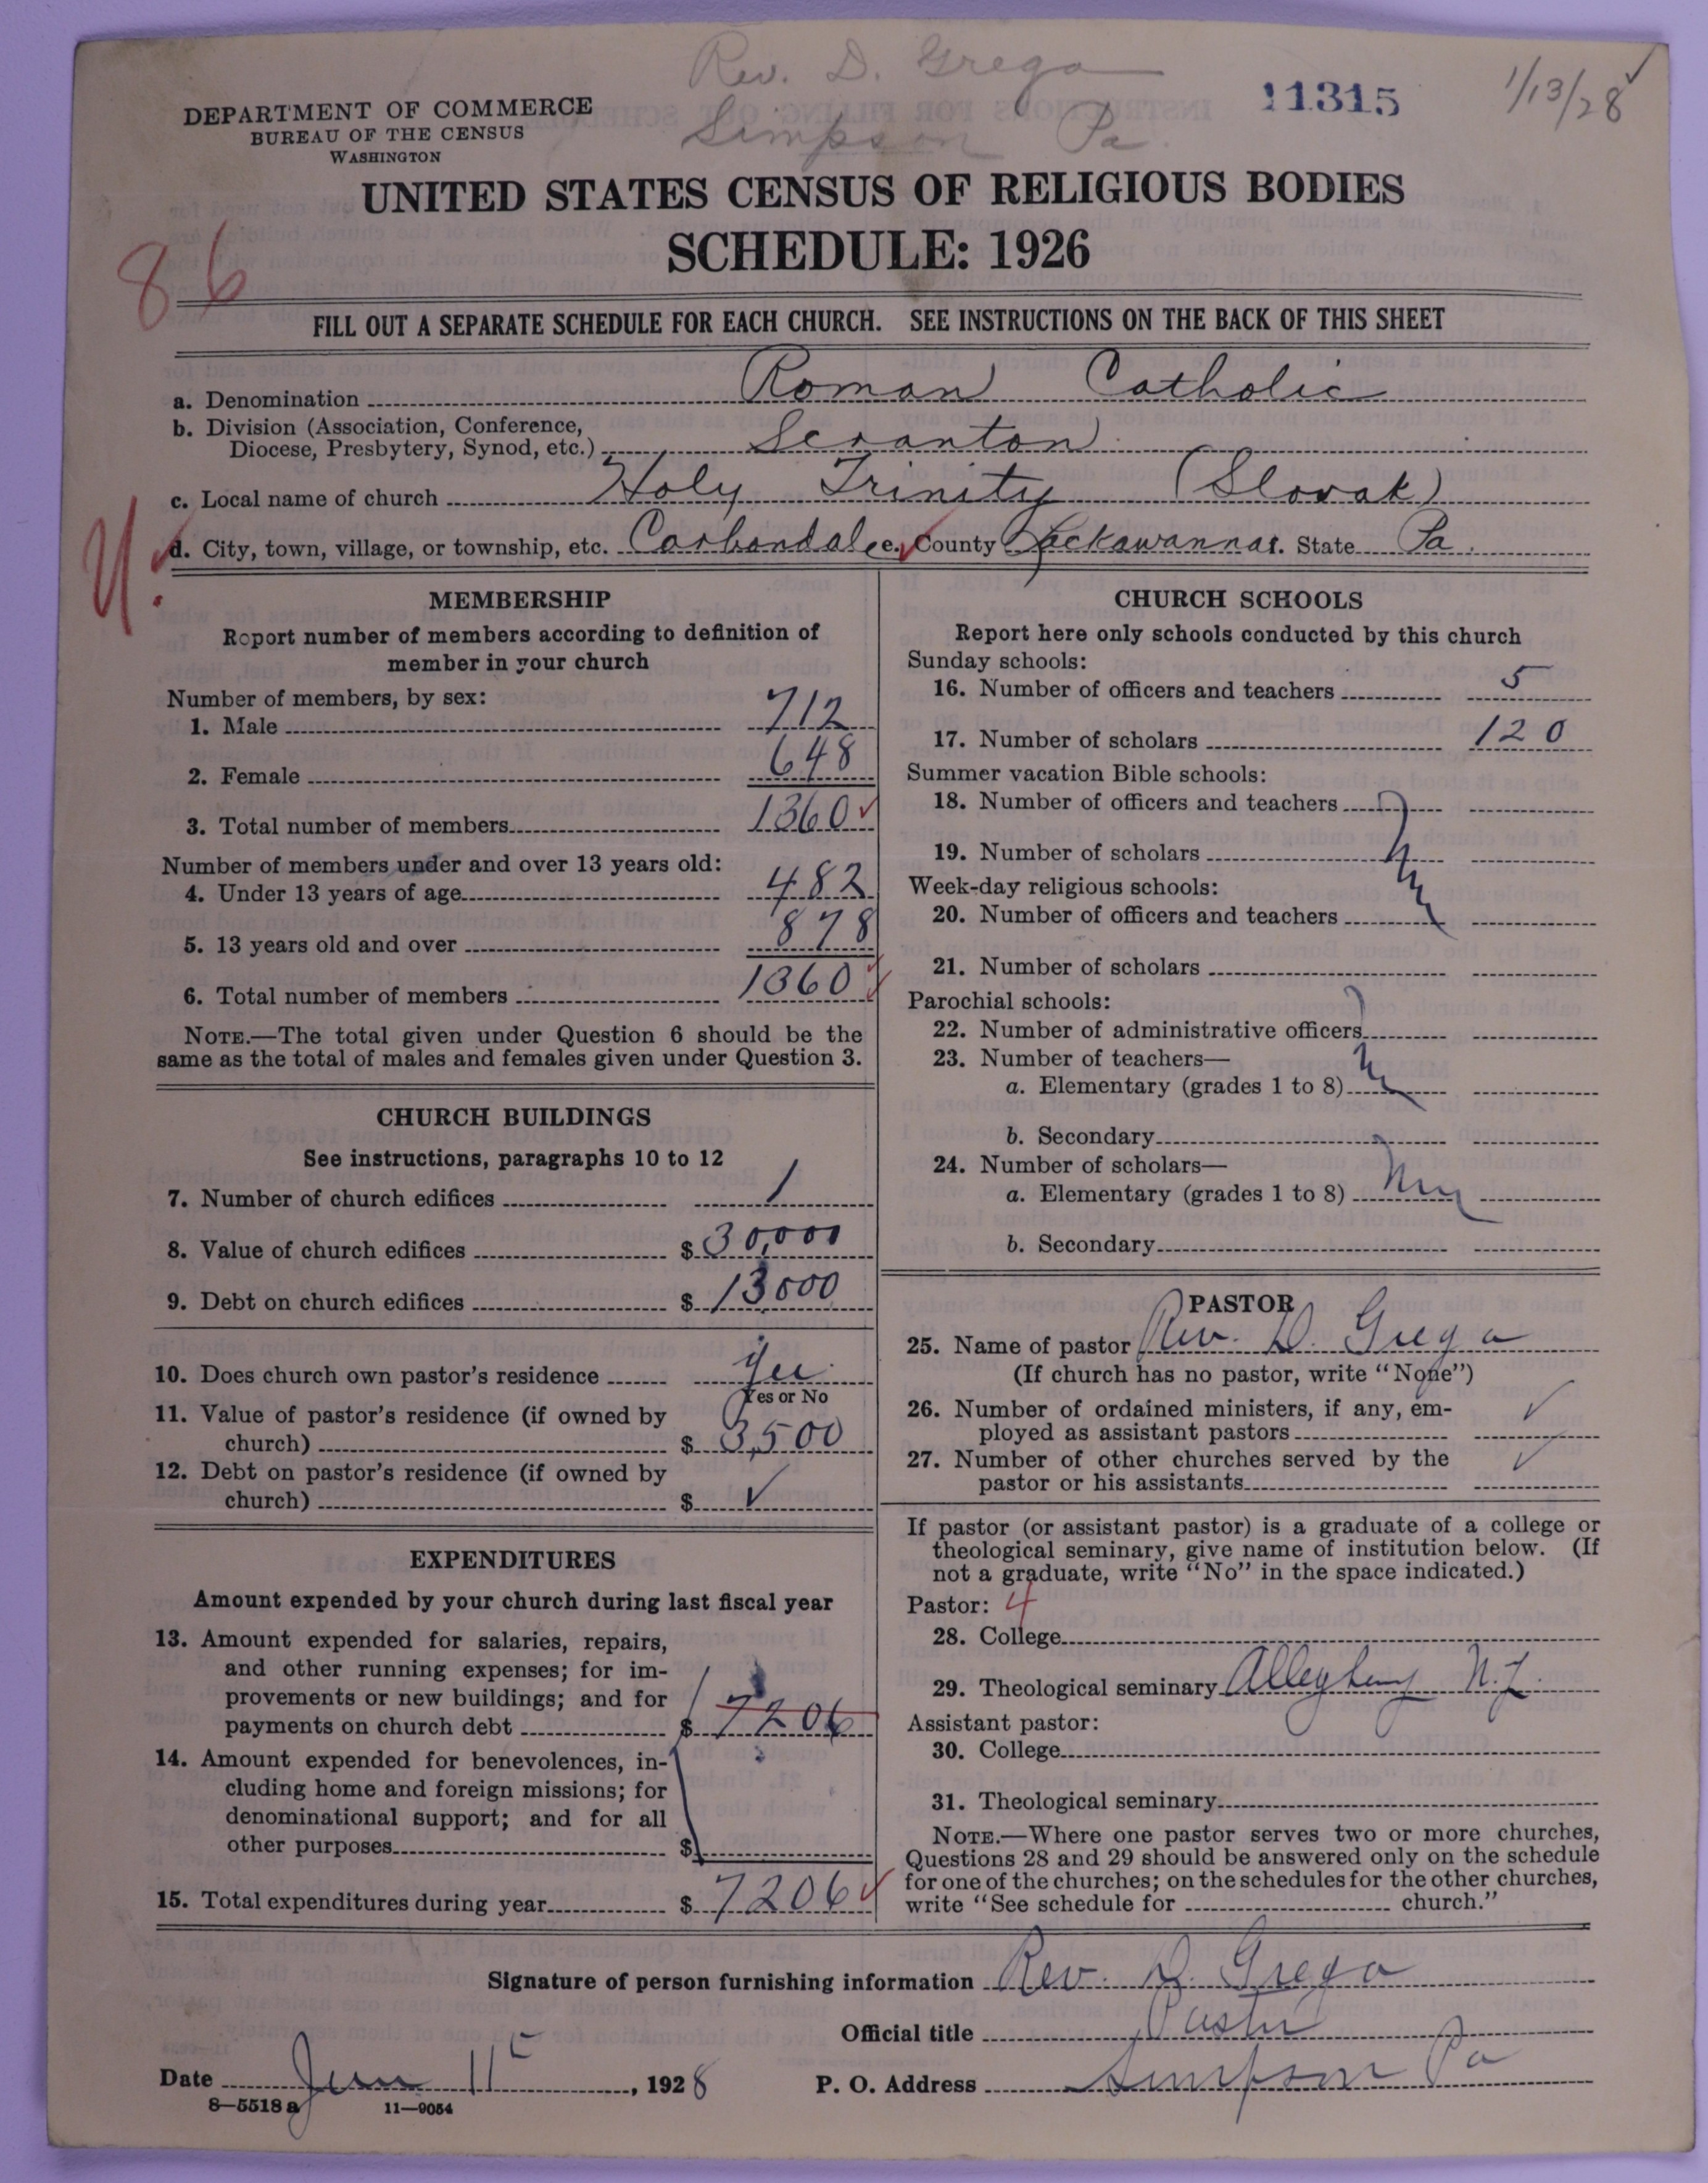 Rev. D. Grega
Simpson Pa.
11315
1/13/28
DEPARTMENT OF COMMERCE
BUREAU OF THE CENSUS
WASHINGTON
UNITED STATES CENSUS OF RELIGIOUS BODIES
SCHEDULE: 1926
86
FILL OUT A SEPARATE SCHEDULE FOR EACH CHURCH. SEE INSTRUCTIONS ON THE BACK OF THIS SHEET
a. Denomination Roman Catholic
b. Division (Association, Conference,
Diocese, Presbytery, Synod, etc.) Scranton
c. Local name of church Holy Trinity (Slovak)
d. City, town, village, or township, etc. Carbondale e. County Lackawanna f. State Pa.
MEMBERSHIP
Report number of members according to definition of
member in your church
Number of members, by sex:
1. Male 712
2. Female 648
3. Total number of members 1360
Number of members under and over 13 years old:
4. Under 13 years of age 482
5. 13 years old and over 878
6. Total number of members 1360
NOTE.—The total given under Question 6 should be the
same as the total of males and females given under Question 3.
CHURCH BUILDINGS
See instructions, paragraphs 10 to 12
7. Number of church edifices 1
8. Value of church edifices $ 30,000
9. Debt on church edifices $ 13,000
10. Does church own pastor's residence Yes
Yes or No
11. Value of pastor's residence (if owned by
church) $ 3,500
12. Debt on pastor's residence (if owned by
church) $
EXPENDITURES
Amount expended by your church during last fiscal year
13. Amount expended for salaries, repairs,
and other running expenses; for im-
provements or new buildings; and for
payments on church debt $ 7206
14. Amount expended for benevolences, in-
cluding home and foreign missions; for
denominational support; and for all
other purposes $
15. Total expenditures during year $ 7206
CHURCH SCHOOLS
Report here only schools conducted by this church
Sunday schools:
16. Number of officers and teachers 5
17. Number of scholars 120
Summer vacation Bible schools:
18. Number of officers and teachers
19. Number of scholars
Week-day religious schools:
20. Number of officers and teachers
21. Number of scholars
Parochial schools:
22. Number of administrative officers
23. Number of teachers—
a. Elementary (grades 1 to 8)
b. Secondary
24. Number of scholars—
a. Elementary (grades 1 to 8)
b. Secondary
PASTOR
25. Name of pastor Rev. D. Grega
(If church has no pastor, write "None")
26. Number of ordained ministers, if any, em-
ployed as assistant pastors
27. Number of other churches served by the
pastor or his assistants
If pastor (or assistant pastor) is a graduate of a college or
theological seminary, give name of institution below. (If
not a graduate, write "No" in the space indicated.)
Pastor: 4
28. College
29. Theological seminary Alleghany N.Y.
Assistant pastor:
30. College
31. Theological seminary
NOTE.—Where one pastor serves two or more churches,
Questions 28 and 29 should be answered only on the schedule
for one of the churches; on the schedules for the other churches,
write "See schedule for church."
Signature of person furnishing information Rev. D. Grega
Official title Pastor
Date 11, 1928 P. O. Address Simpson Pa
8—5518 a 11—9054